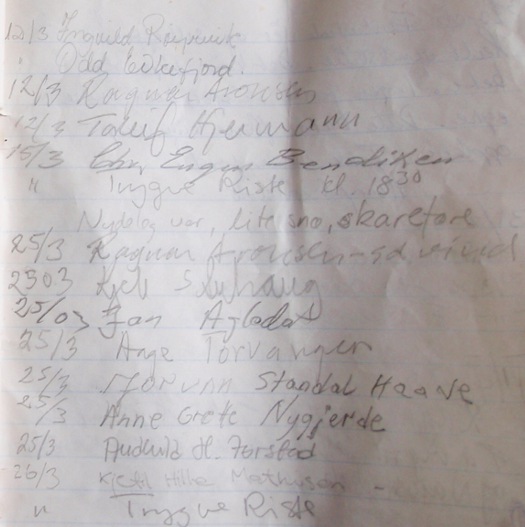 12/3 Ingvild
" Odd Eikefjord.
12/3 Ragnar Aronsen
12/3 Toleif Hjermann
15/3 Chr. Engum Bendixen
" Tryggve Riste kl. 18 30
Nydelig vær, lite snø, skareføre
25/3 Ragnar Aronsen
2503 Kjell
25/03 Jan
25/3 Aage Torvanger
25/3 Jorunn Standal Haave
25/3 Anne Grete Nygjerde
25/3 Audhild H. Forstad
26/3 Kjetil Hille Mathisen
" Tryggve Riste